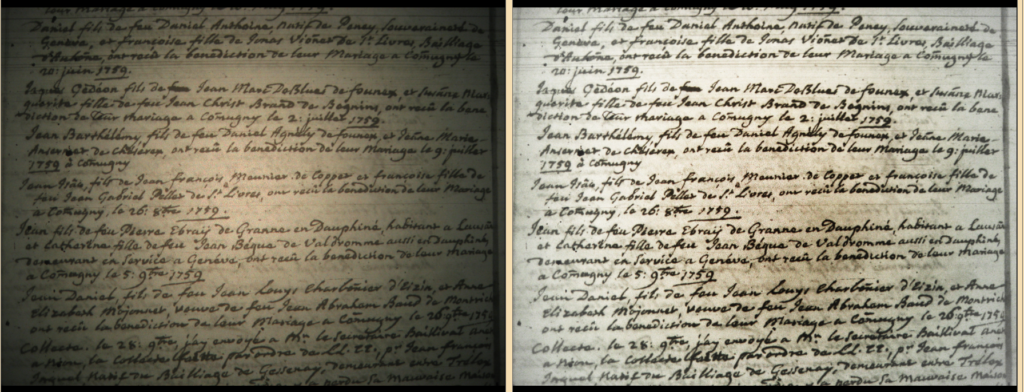 Daniel fils de feu Daniel Anthoine, natif de Peney, Souveraineté de
Genève, et françoise fille de Jonas Vionet de St. Livres, Bailliage
d'Aubone, ont recû la benediction de leur Mariage a Comugny le
20: juin 1759.
Jaques Gédéon fils de Jean Marc DeBlues de founex, et Susane Mar
guerite fille de feu Jean Christ Brand de Begnins, ont recû la bene
diction de leur mariage a Comugny le 2: juillet 1759.
Jean Barthélémy fils de feu Daniel de founex, et Jeane Marie
de Chésérex, ont recû la benediction de leur Mariage le 9: juillet
1759 à Comugny
Jean fils de Jean françois Meunier de Coppet et françoise fille de
feu Jean Gabriel Pellet de St. Livres, ont recû la benediction de leur Mariage
a Comugny, le 26: 8bre 1759.
Jean fils de feu Pierre Ebraÿ de Granne en Dauphiné, habitant a
et Catherine fille de feu Jean Béque de Valdromme aussi en Dauphiné,
demeurant en Service a Genève, ont recû la benediction de leur Mariage
a Comugny le 5: 9bre 1759
Jean Daniel, fils de feu Jean Louys Charbônier d'Eizin, et Anne
Elizabeth Mojonnet, veuve de feu Jean Abraham Baud de
ont recû la benediction de leur Mariage a Comugny le 26 9bre 1759
Collecte. le 28: 9bre, j'ay envoyé a Mr. le Secretaire Baillival
a Nion, la Collecte faitte par ordre de LL. EE., pr. Jean françois
natif du Bailliage de Gessenay,
perdu sa